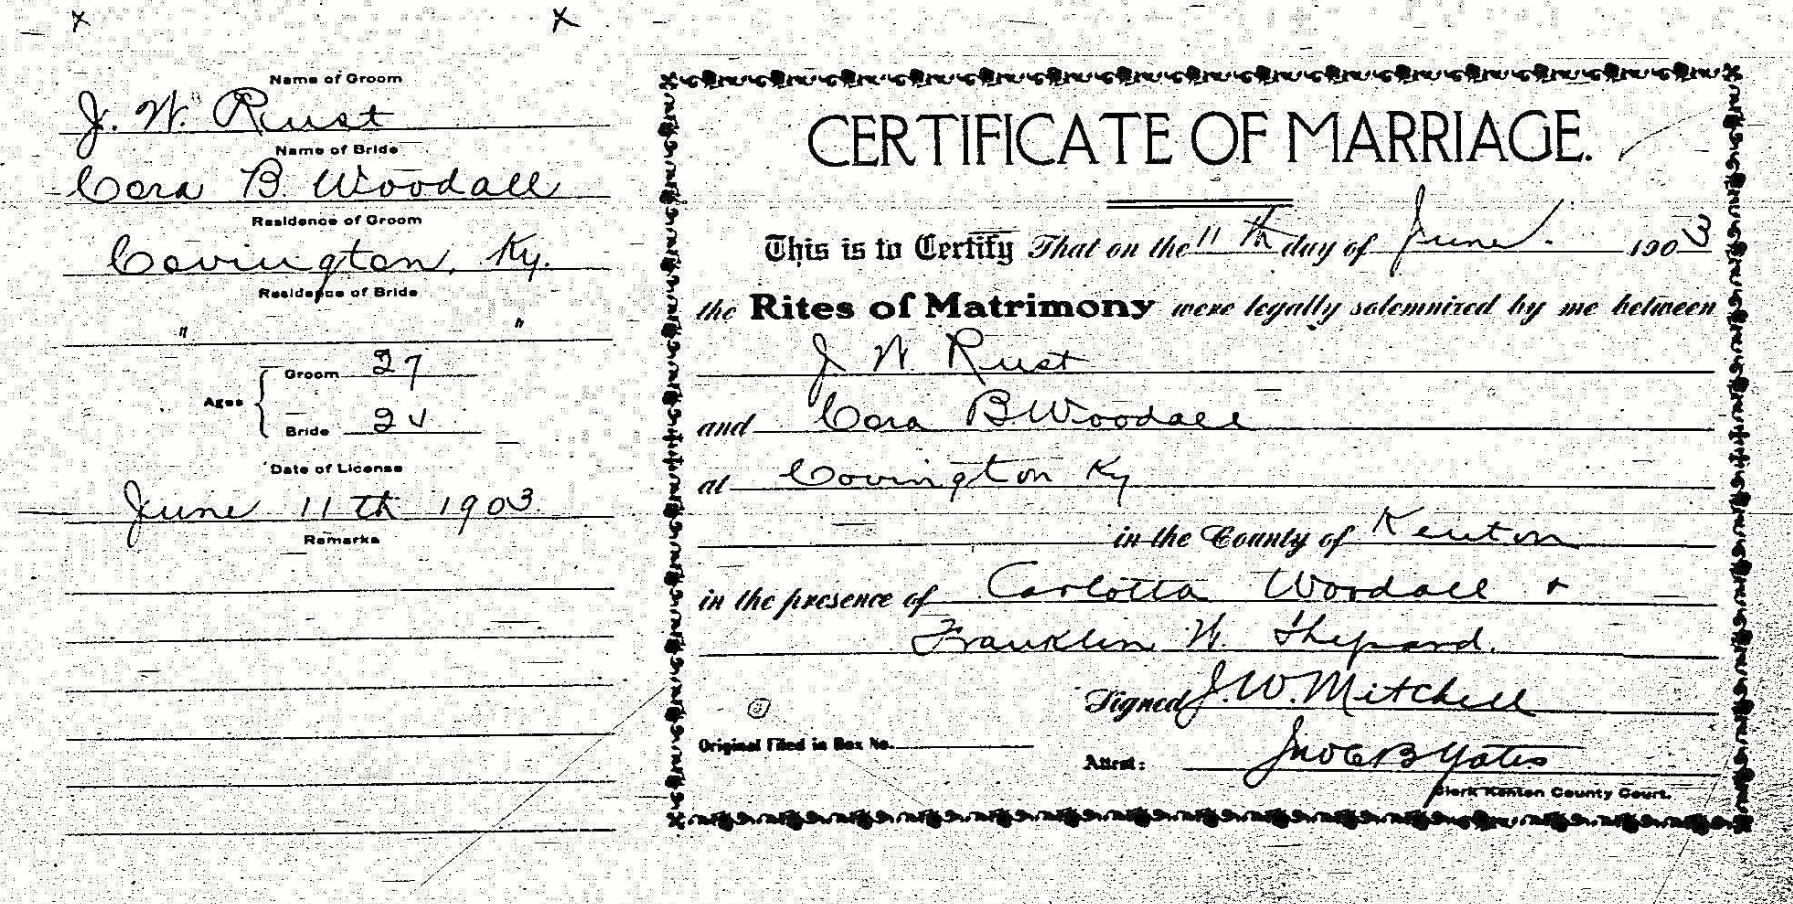 x x
Name of Groom
J. W. Rust
Name of Bride
Cora B. Woodall
Residence of Groom
Covington, Ky.
Residence of Bride
" "
Ages
Groom 27
Bride
Date of License
June 11th 1903
Remarks
CERTIFICATE OF MARRIAGE.
This is to Certify That on the 11th day of June. 1903
the Rites of Matrimony were legally solemnized by me between
J W. Rust
and Cora B Woodall
at Covington Ky
in the County of Kenton
in the presence of Carlotta Woodall +
Franklin W. Shepard.
Signed J. W. Mitchell
Original Filed in Box No.
Attest: Jno C B Yates
Clerk Kenton County Court.